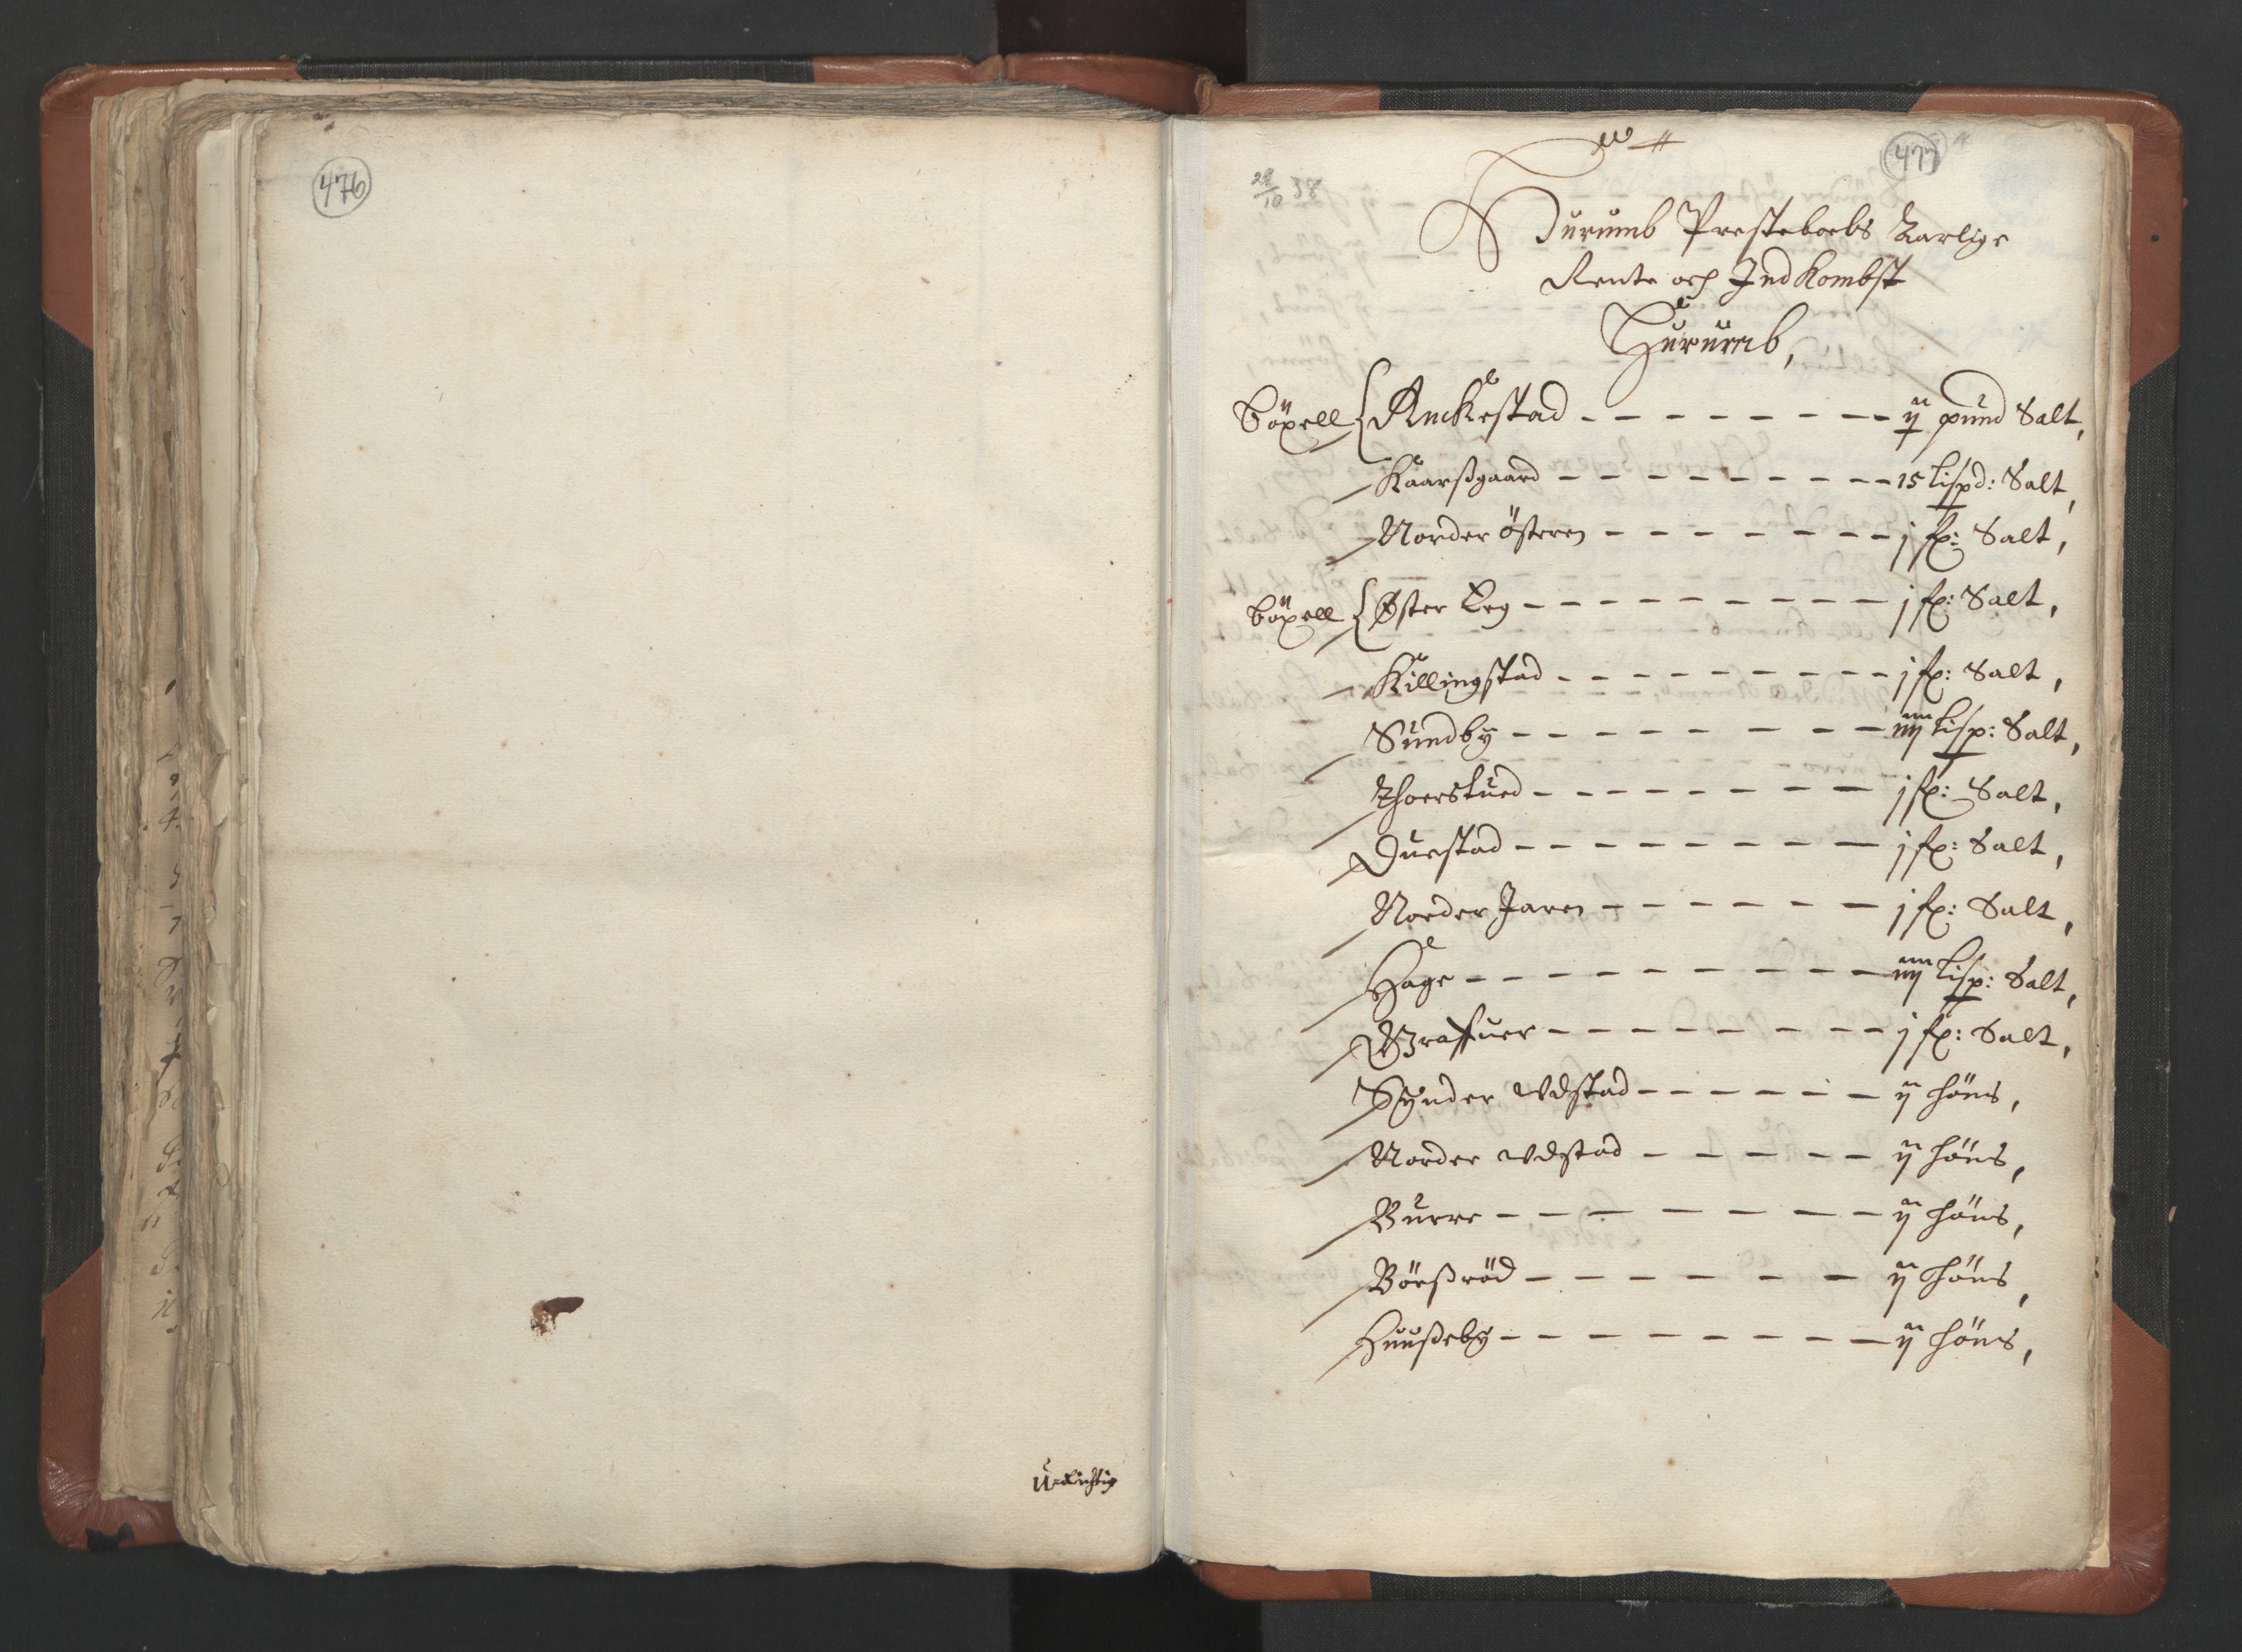 476
U-Richtig
477
28/10 38
Hurumb Presteboels Aarlige
Rente och Indkombst
Hurumb,
böxell { Anckestad - - - - - - - - ij pund Salt,
Kaarßgaard - - - - - - - - - 15 Lispd: Salt,
Norder österen - - - - - - - j sp: Salt,
böxell { Øster Eeg - - - - - - - - - j sp: Salt,
Killingstad - - - - - - - - - j sp: Salt,
Sundby - - - - - - - - iiij Lisp: Salt,
Thorstued - - - - - - - - j sp: Salt,
Duestad - - - - - - - - - j sp: Salt,
Norder Jaren - - - - - - j sp: Salt,
Hage - - - - - - - - - iiij Lisp: Salt,
Graffuer - - - - - - - - j sp: Salt,
Synder Vdstad - - - - - - ij höns,
Norder Vdstad - - - - - ij höns,
Burre - - - - - - - - ij höns,
Börßröd - - - - - - - ij höns,
Huußeby - - - - - - - - - ij höns,